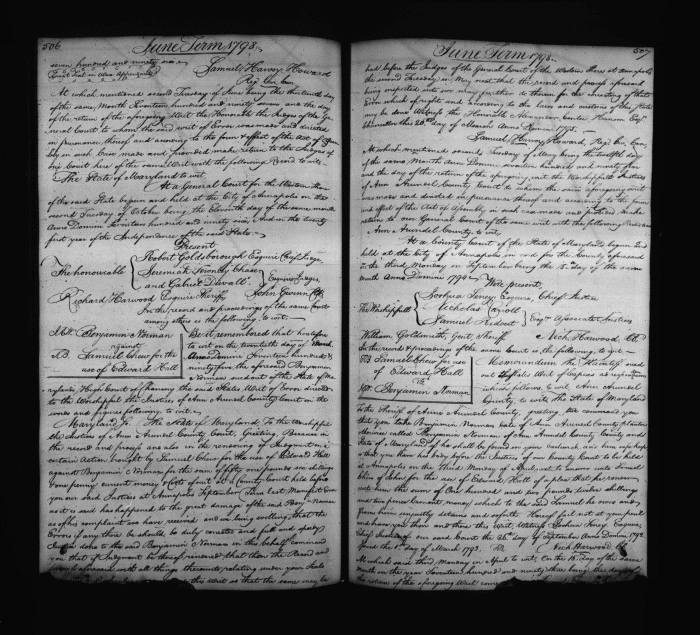 506
June Term 1798.
seven hundred and ninety six
Samuel Harvey Howard
Reg. Cur. Can.
At which mentioned second Tuesday of June being the thirteenth day
of the same Month Seventeen hundred and ninety seven and the day
of the return of the aforegoing Writ the Honorable the Judges of the
General Court to whom the said writ of Error was and directed
in pursuance thereof and according to the form & effect of the Act of
in such case made and provided make return to the Judges of
this Court here of the same Writ with the following Record to wit.
The State of Maryland to wit.
At a General Court for the Western Shore
of the said State begun and held at the City of Annapolis on the
second Tuesday of October being the Eleventh day of the same month
Anno Domini Seventeen hundred and ninety six, And in the twenty
first year of the Independence of the said State
Present
The honourable
Robert Goldsborough Esquire Chief Judge
Jeremiah Townly Chase
and Gabriel Duvall
Esquires Judges
Richard Harwood Esquire Sheriff
John Gwinn Clk
In the record and proceedings of the same Court
among others is the following to wit.
Benjamin Norman
against
Samuel Chew for the
use of Edward Hall
Be it remembered that heretofore
to wit on the twentieth day of March
Anno Domini Seventeen hundred &
ninety five the aforesaid Benjamin
Norman sued out of the State of
High Court of Chancery the said States Writ of Error directed
to the Worshipful the Justices of Ann Arundel County Court in the
words and figures following to wit.
Maryland Sc. The State of Maryland To the worshipful
the Justices of Ann Arundel County Court, Greeting, Because in
the record and process and also in the rendering of Judgment in a
certain Action brought by Samuel Chew for the use of Edward Hall
against Benjamin Norman for the sum of fifty one pounds six shillings
one penny current money & Cost of suit at a County Court held before
you our said Justices at Annapolis September Term last Manifest Error
as it is said has happened to the great damage of the said Benj. Norman
as of his complaint we have received and we being willing that the
Errors if any there be should be duly corrected and full and speedy
Justice done to the said Benjamin Norman in this behalf command
you that if Judgment be thereof rendered that then the Record and
process aforesaid with all things thereunto relating under your Seals
to this writ so that the same may be
507
June Term 1798
had before the Judges of the General Court of the Western Shore at Annapolis
the second Tuesday in May next that the record and process aforesaid
being inspected we may further do therein for the correcting of that
Error which of right and according to the laws and customs of this State
may be done Witness the Honorable Alexander Contee Hanson Esqr.
Chancellor this 20th day of March Anno Domini 1795.
Samuel Harvey Howard, Reg. Cur. Can.
At which mentioned second Tuesday of May being the twelfth day
of the same Month Anno Domini Seventeen hundred and ninety five
and the day of the return of the aforegoing writ the Worshipful Justices
of Ann Arundel County Court to whom the same aforegoing writ
was and directed in pursuance thereof and according to the form
and effect of the Act of Assembly in such case made and provided make
return to our General Court of the same writ with the following Record
Ann Arundel County, to wit,
At a County Court of the State of Maryland begun and
held at the City of Annapolis in and for the County aforesaid
on the third Monday in September being the 15. day of the same
month Anno Domini 1794
Were present,
The Worshipfull
Joshua Seney Esquire, Chief Justice
Nicholas Carroll
Samuel Ridout
Esqrs Associate Justices
William Goldsmith, Gent. Sheriff
Nich. Harwood Clk.
In the record & proceedings of the same Court is the following, to wit,
Samuel Chew for use
of Edward Hall
vs
Benjamin Norman
Memorandum the Plaintiff sued
out this States Writ of Capias ad respondendum
which follows to wit Ann Arundel
County, to wit the State of Maryland
To the Sheriff of Ann Arundel County, greeting, we command you
that you take Benjamin Norman late of Ann Arundel County planter
otherwise called Benjamin Norman of Ann Arundel County and
State of Maryland if he shall be found in your bailiwick and him safe keep
that you have his body before the Justices of our County Court to be held
at Annapolis on the Third Monday of April next to answer unto Samuel
Chew of John for the use of Edward Hall of a plea that he render
unto him the sum of One hundred and two pounds twelve shillings
and two pence current money which to the said Samuel he owes and
from him unjustly detains and so forth Hereof fail not at your peril
and have you then and there this Writ, Witness Joshua Seney Esquire,
Chief Justice of our said Court the 26th day of September Anno Domini 1792
Issued the 1st day of March 1793.
Nich. Harwood Clk
At which said third Monday in April to wit On the 15 day of the same
Month in the year Seventeen hundred and ninety three being the day of
the return of the aforegoing Writ